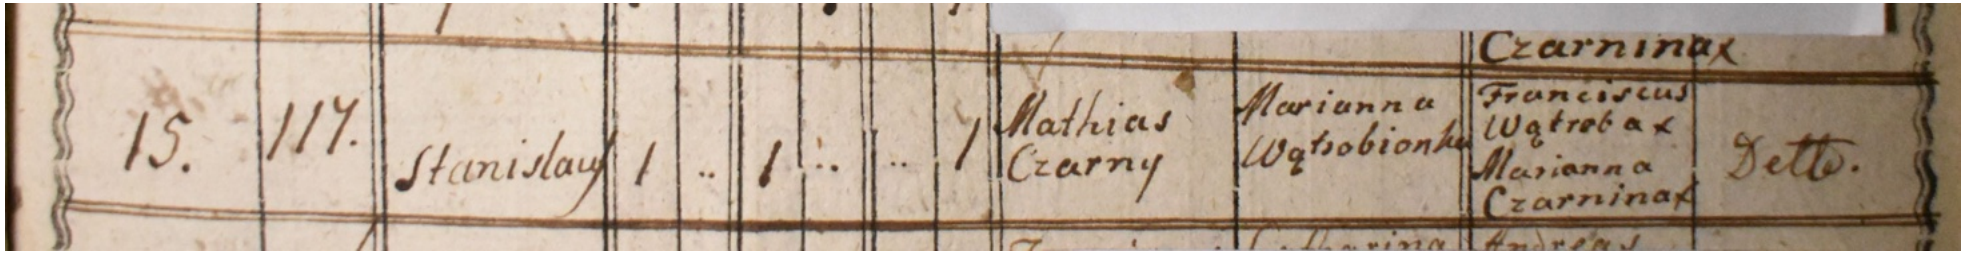 Czarnina x
15. 117. Stanislaus 1 .. 1 .. .. 1
Mathias
Czarny
Marianna
Wątrobionka
Franciscus
Wątroba x
Marianna
Czarnina x
Detto.
Catharina
Andreas